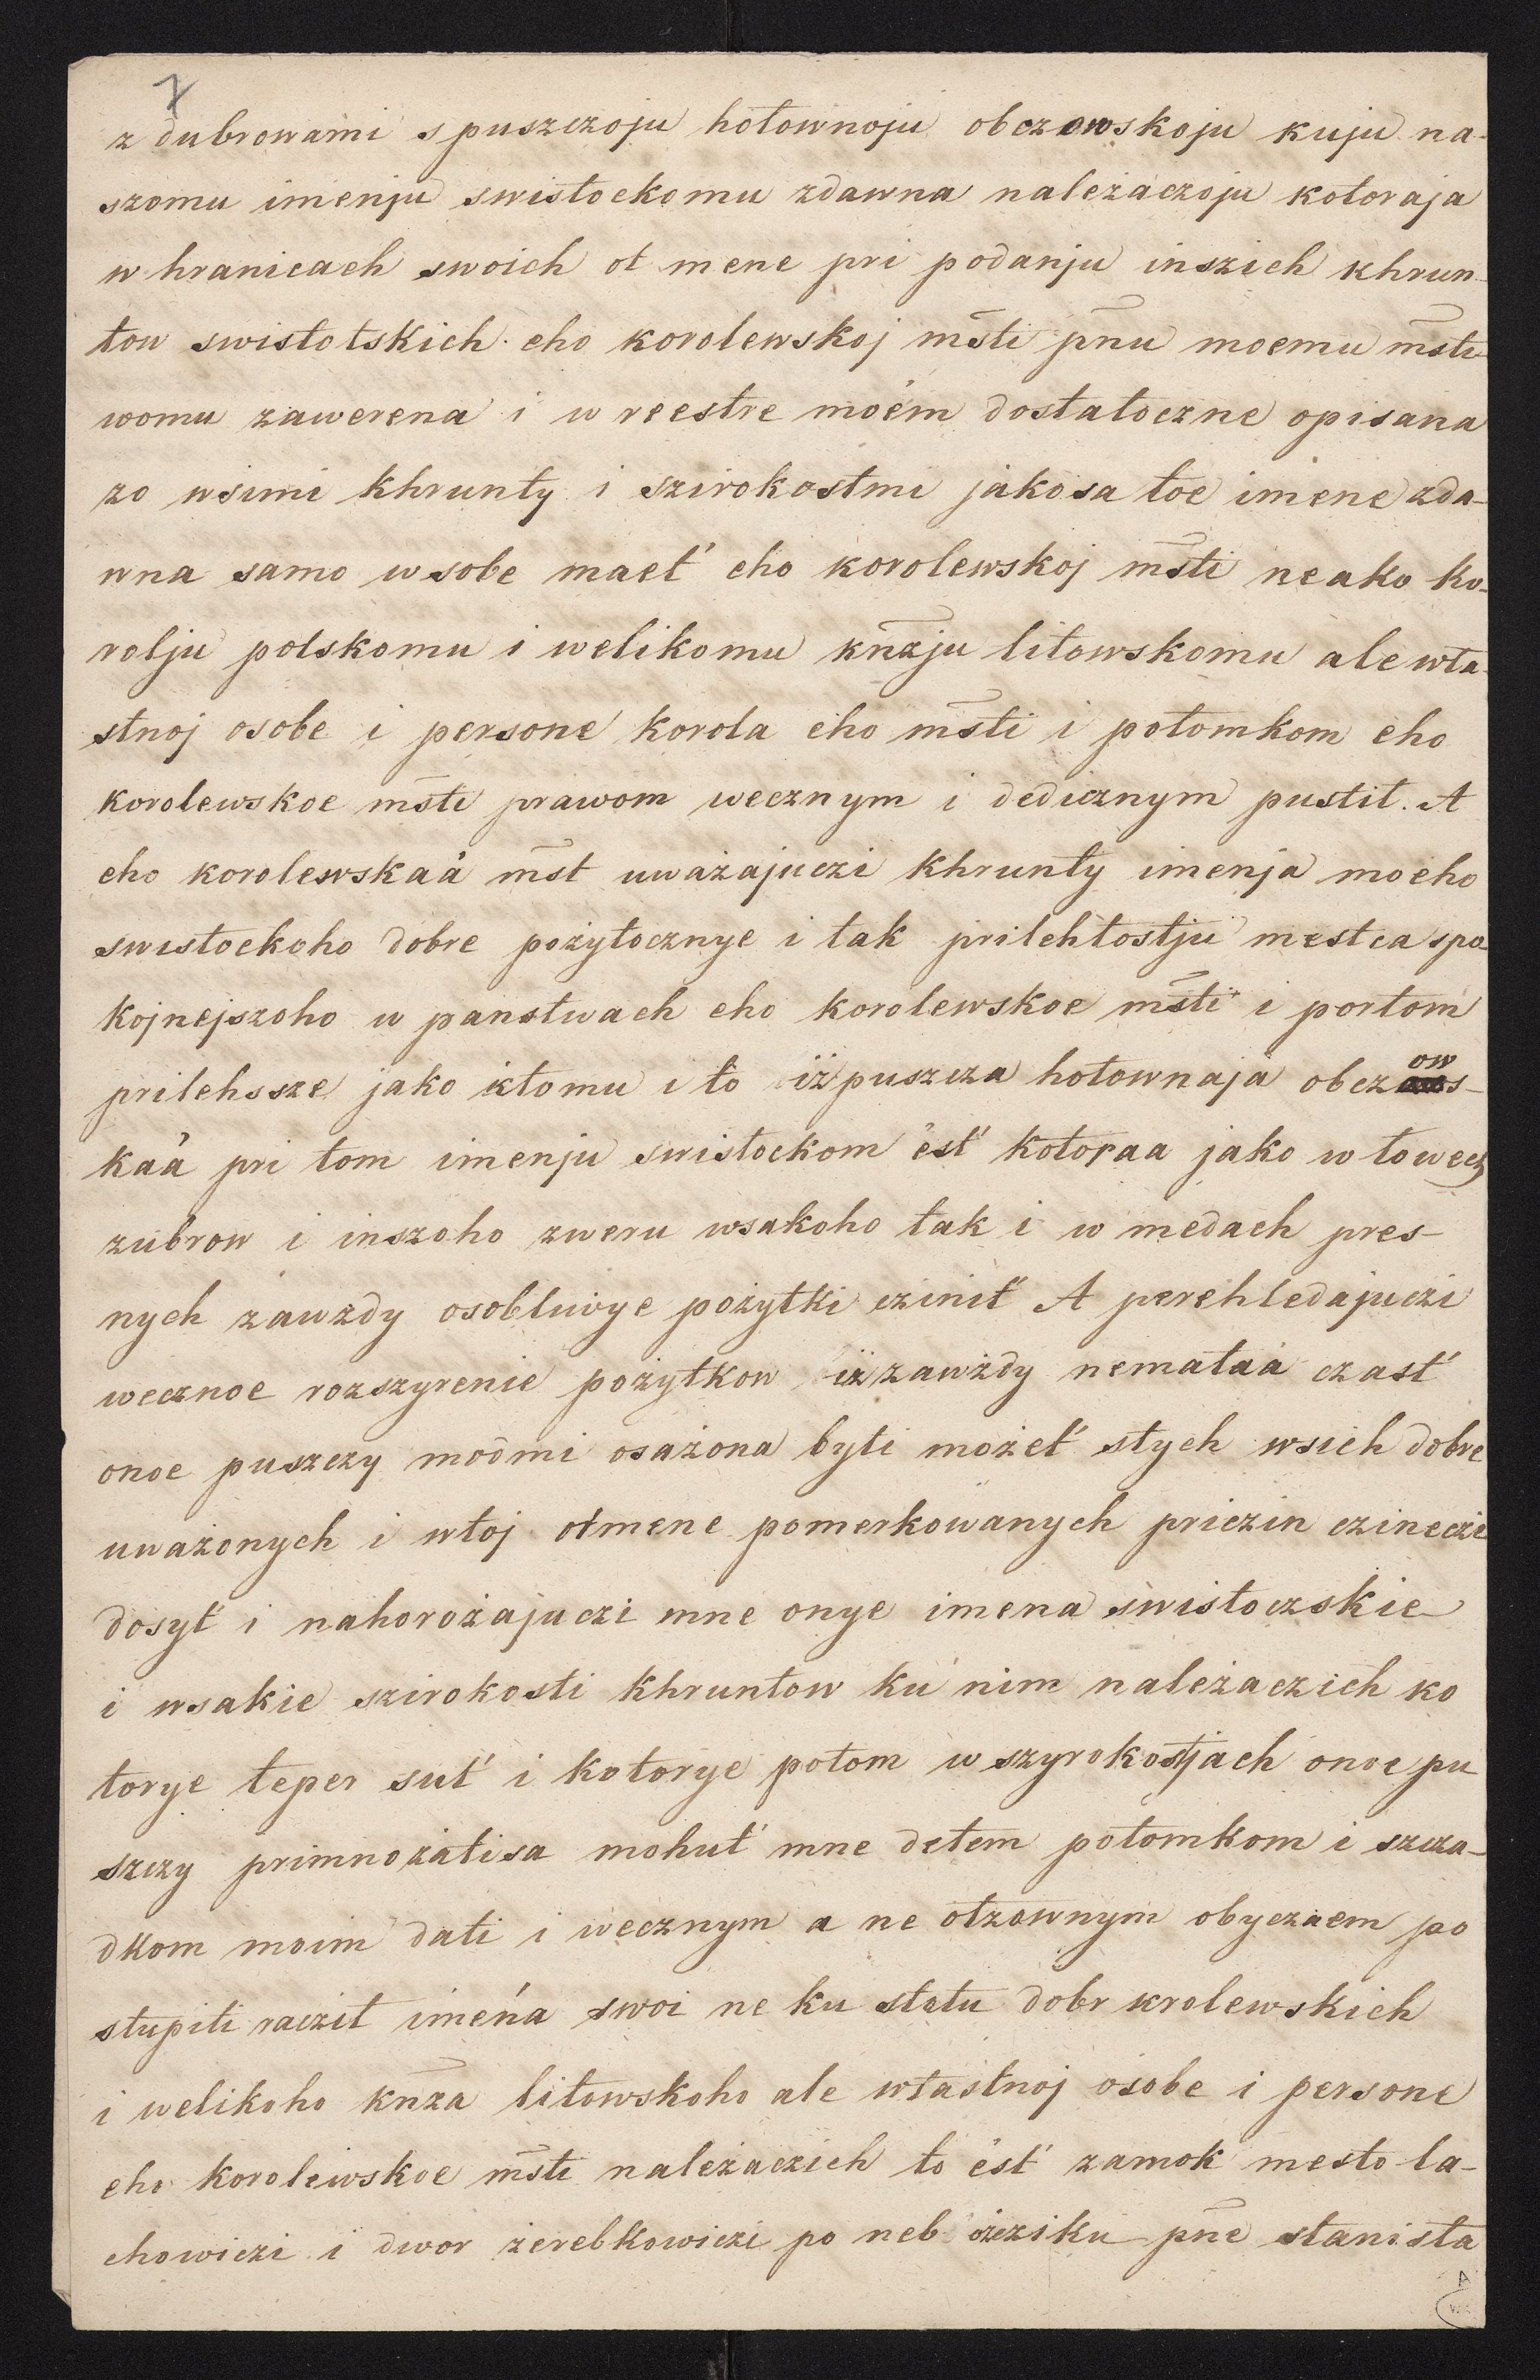 7
z dubrowami s puszczoju hołownoju obczowskoju kuju na-
szomu imenju swisłockomu zdawna należaczoju kotoraja
w hranicach swoich ot mene pri podanju inszich khrun-
tow swisłotskich eho korolewskoj msti pnu moemu msti-
womu zawerena i w reestre moém dostatoczne opisana
zo wsimi khrunty i szirokostmi jakosa toe imene zda-
wna samo w sobe maet' eho korolewskoj msti neako ko-
rolju polskomu i welikomu knzju litowskomu ale wła-
stnoj osobe i persone korola eho msti i potomkom eho
korolewskoe msti prawom wecznym i dedicznym pustił. A
eho korolewskaá mst uważajuczi khrunty imenja moeho
swisłockoho dobre pożytocznye i tak prilehłostju mestca spo-
kojnejszoho w panstwach eho korolewskoe msti i portom
prilehsze jako ktomu i to iż puszcza hołownaja obczows-
kaá pri tom imenju swisłockom ést' kotoraa jako w łowech
zubrow i inszoho zweru wsakoho tak i w medach pres-
nych zawżdy osobliwye pożytki czinit' A perehledajuczi
wecznoe rozszyrenie pożytkow iż zawżdy nemałaá czast'
onoe puszczy modmi osażona byti możet' stych wsich dobre
uważonych i wtoj otmene pomerkowanych priczin czineczi
dosyt' i nahorożajuczi mne onye imena swisłoczskie
i wsakie szirokosti khruntow ku nim należaczich ko
torye teper sut' i kotorye potom w szyrokostjach onoe pu
szczy primnożatisa mohut' mne detem potomkom i szcza-
dkom moim dati i wecznym a ne otzownym obyczaem po
stupiti racził iméńa swoi ne ku stołu dobr krolewskich
i welikoho knza litowskoho ale własnoj osobe i persone
eho korolewskoe msti należaczich to ést' zamok mesto la-
chowiczi i dwor żerebkowiczi po neb ożcziku pne stanisła